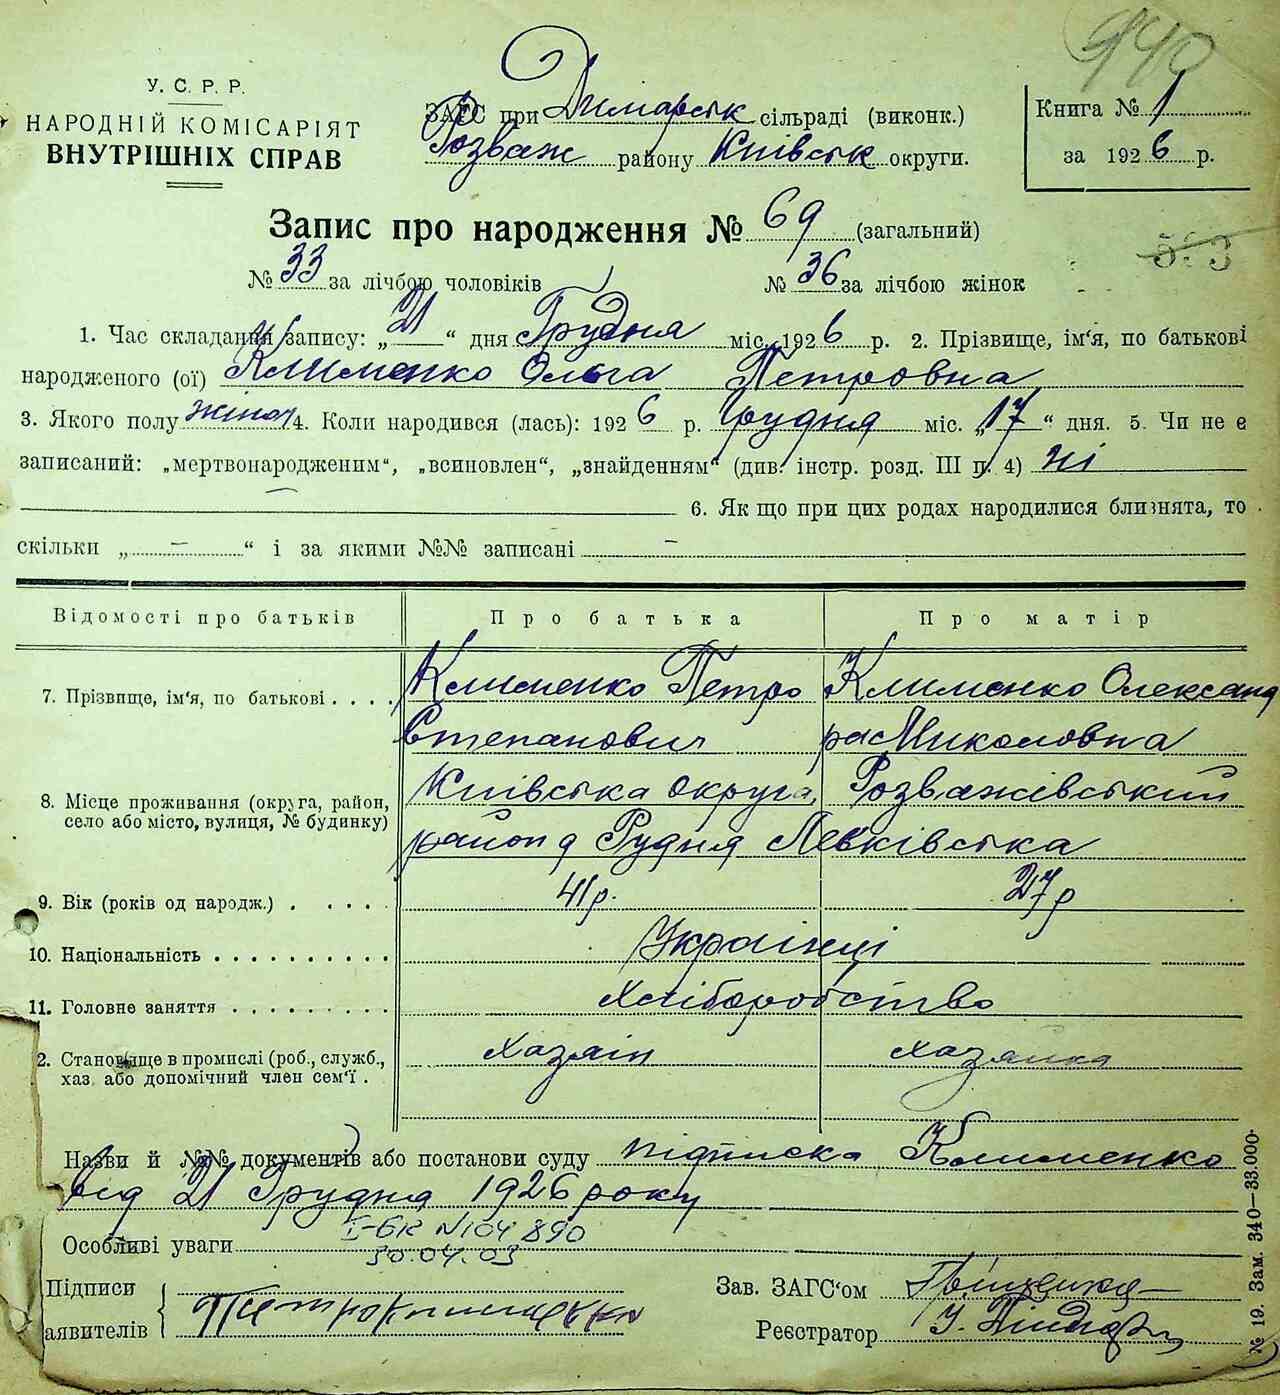 940
У. С. Р. Р.
НАРОДНІЙ КОМІСАРІЯТ
ВНУТРІШНІХ СПРАВ
ЗАГС при Димарськ сільраді (виконк.)
Розваж району Київськ округи.
Книга № 1
за 1926 р.
Запис про народження № 69 (загальний)
№ 33 за лічбою чоловіків № 36 за лічбою жінок
1. Час складання запису: „21“ дня Грудня міс. 1926 р. 2. Прізвище, ім'я, по батькові
народженого (ої) Клименко Ольга Петровна
3. Якого полу жіноч 4. Коли народився (лась): 1926 р. Грудня міс. „17“ дня. 5. Чи не є
записаний: „мертвонародженим“, „всиновлен“, „знайденням“ (див. інстр. розд. III п. 4) ні
6. Як що при цих родах народилися близнята, то
скільки „ — “ і за якими №№ записані —
Відомості про батьків Про батька Про матір
7. Прізвище, ім'я, по батькові . . . . Клименко Петро Клименко Олександ
Степанович ра Миколовна
8. Місце проживання (округа, район, Київська округа, Розважівський
село або місто, вулиця, № будинку) район д Рудня Левківська
9. Вік (років од народж.) . . . . . 41 р. 27 р
10. Національність . . . . . . . . . . Українці
11. Головне заняття . . . . . . . . . Хліборобство
2. Становище в промислі (роб., служб., Хазяін хазяйка
хаз. або допомічний член сем'ї .
Назви й №№ документів або постанови суду підписка Клименко
від 21 Грудня 1926 року
Особливі уваги I-БК N104890
30.04.03
Підписи
аявителів
Петро Клименко
Зав. ЗАГС'ом
Реєстратор
№ 19. Зам. 340—33.000.